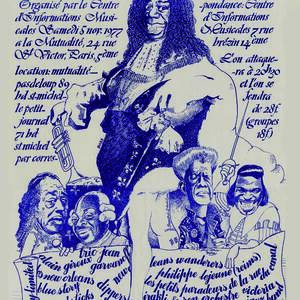 Organisé par le Centre
d'Informations Musi-
cales Samedi 5 nov. 1977
à la Mutualité, 24 rue
St Victor, Paris, 5ème
location: mutualité
pasdeloup 89
bd st-michel
le petit
journal
71 bd
st michel
par corres-
pondance: Centre
d'Informations
Musicales 7 rue
brézin 14ème
L'on attaque-
ra à 20h30
et l'on se
fendra
de 28f
(groupes
18f)
trio jean
alain giroux garvanoff
new orleans
blue story dippers
teans wanderers
philippe lejeune reims
les petits paradeurs de la rue